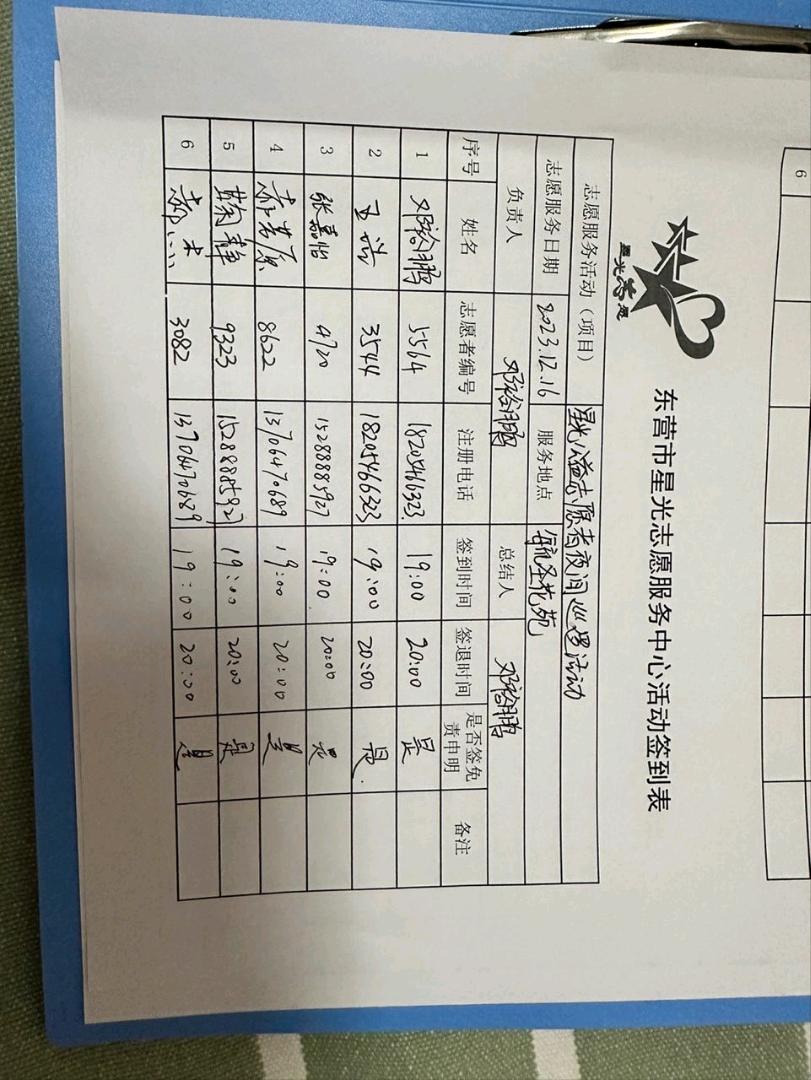 6
星光志愿
东营市星光志愿服务中心活动签到表
志愿服务活动（项目） 星光公益志愿者夜间巡逻活动
志愿服务日期 2023.12.16 服务地点 毓圣花苑
负责人 邓裕鹏 总结人 邓裕鹏
序号 姓名 志愿者编号 注册电话 签到时间 签退时间 是否签免责申明 备注
1 邓裕鹏 5564 18205466323 19:00 20:00 是
2 王浩 3544 18205466323 19:00 20:00 是
3 张嘉怡 4720 15288885927 19:00 20:00 是
4 8622 13706470689 19:00 20:00 是
5 9323 15288885927 19:00 20:00 是
6 3082 13706470689 19:00 20:00 是